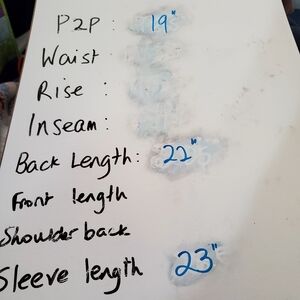 P2P : 19"
Waist :
Rise :
Inseam :
Back Length: 22"
Front length
Shoulder back
Sleeve length 23"